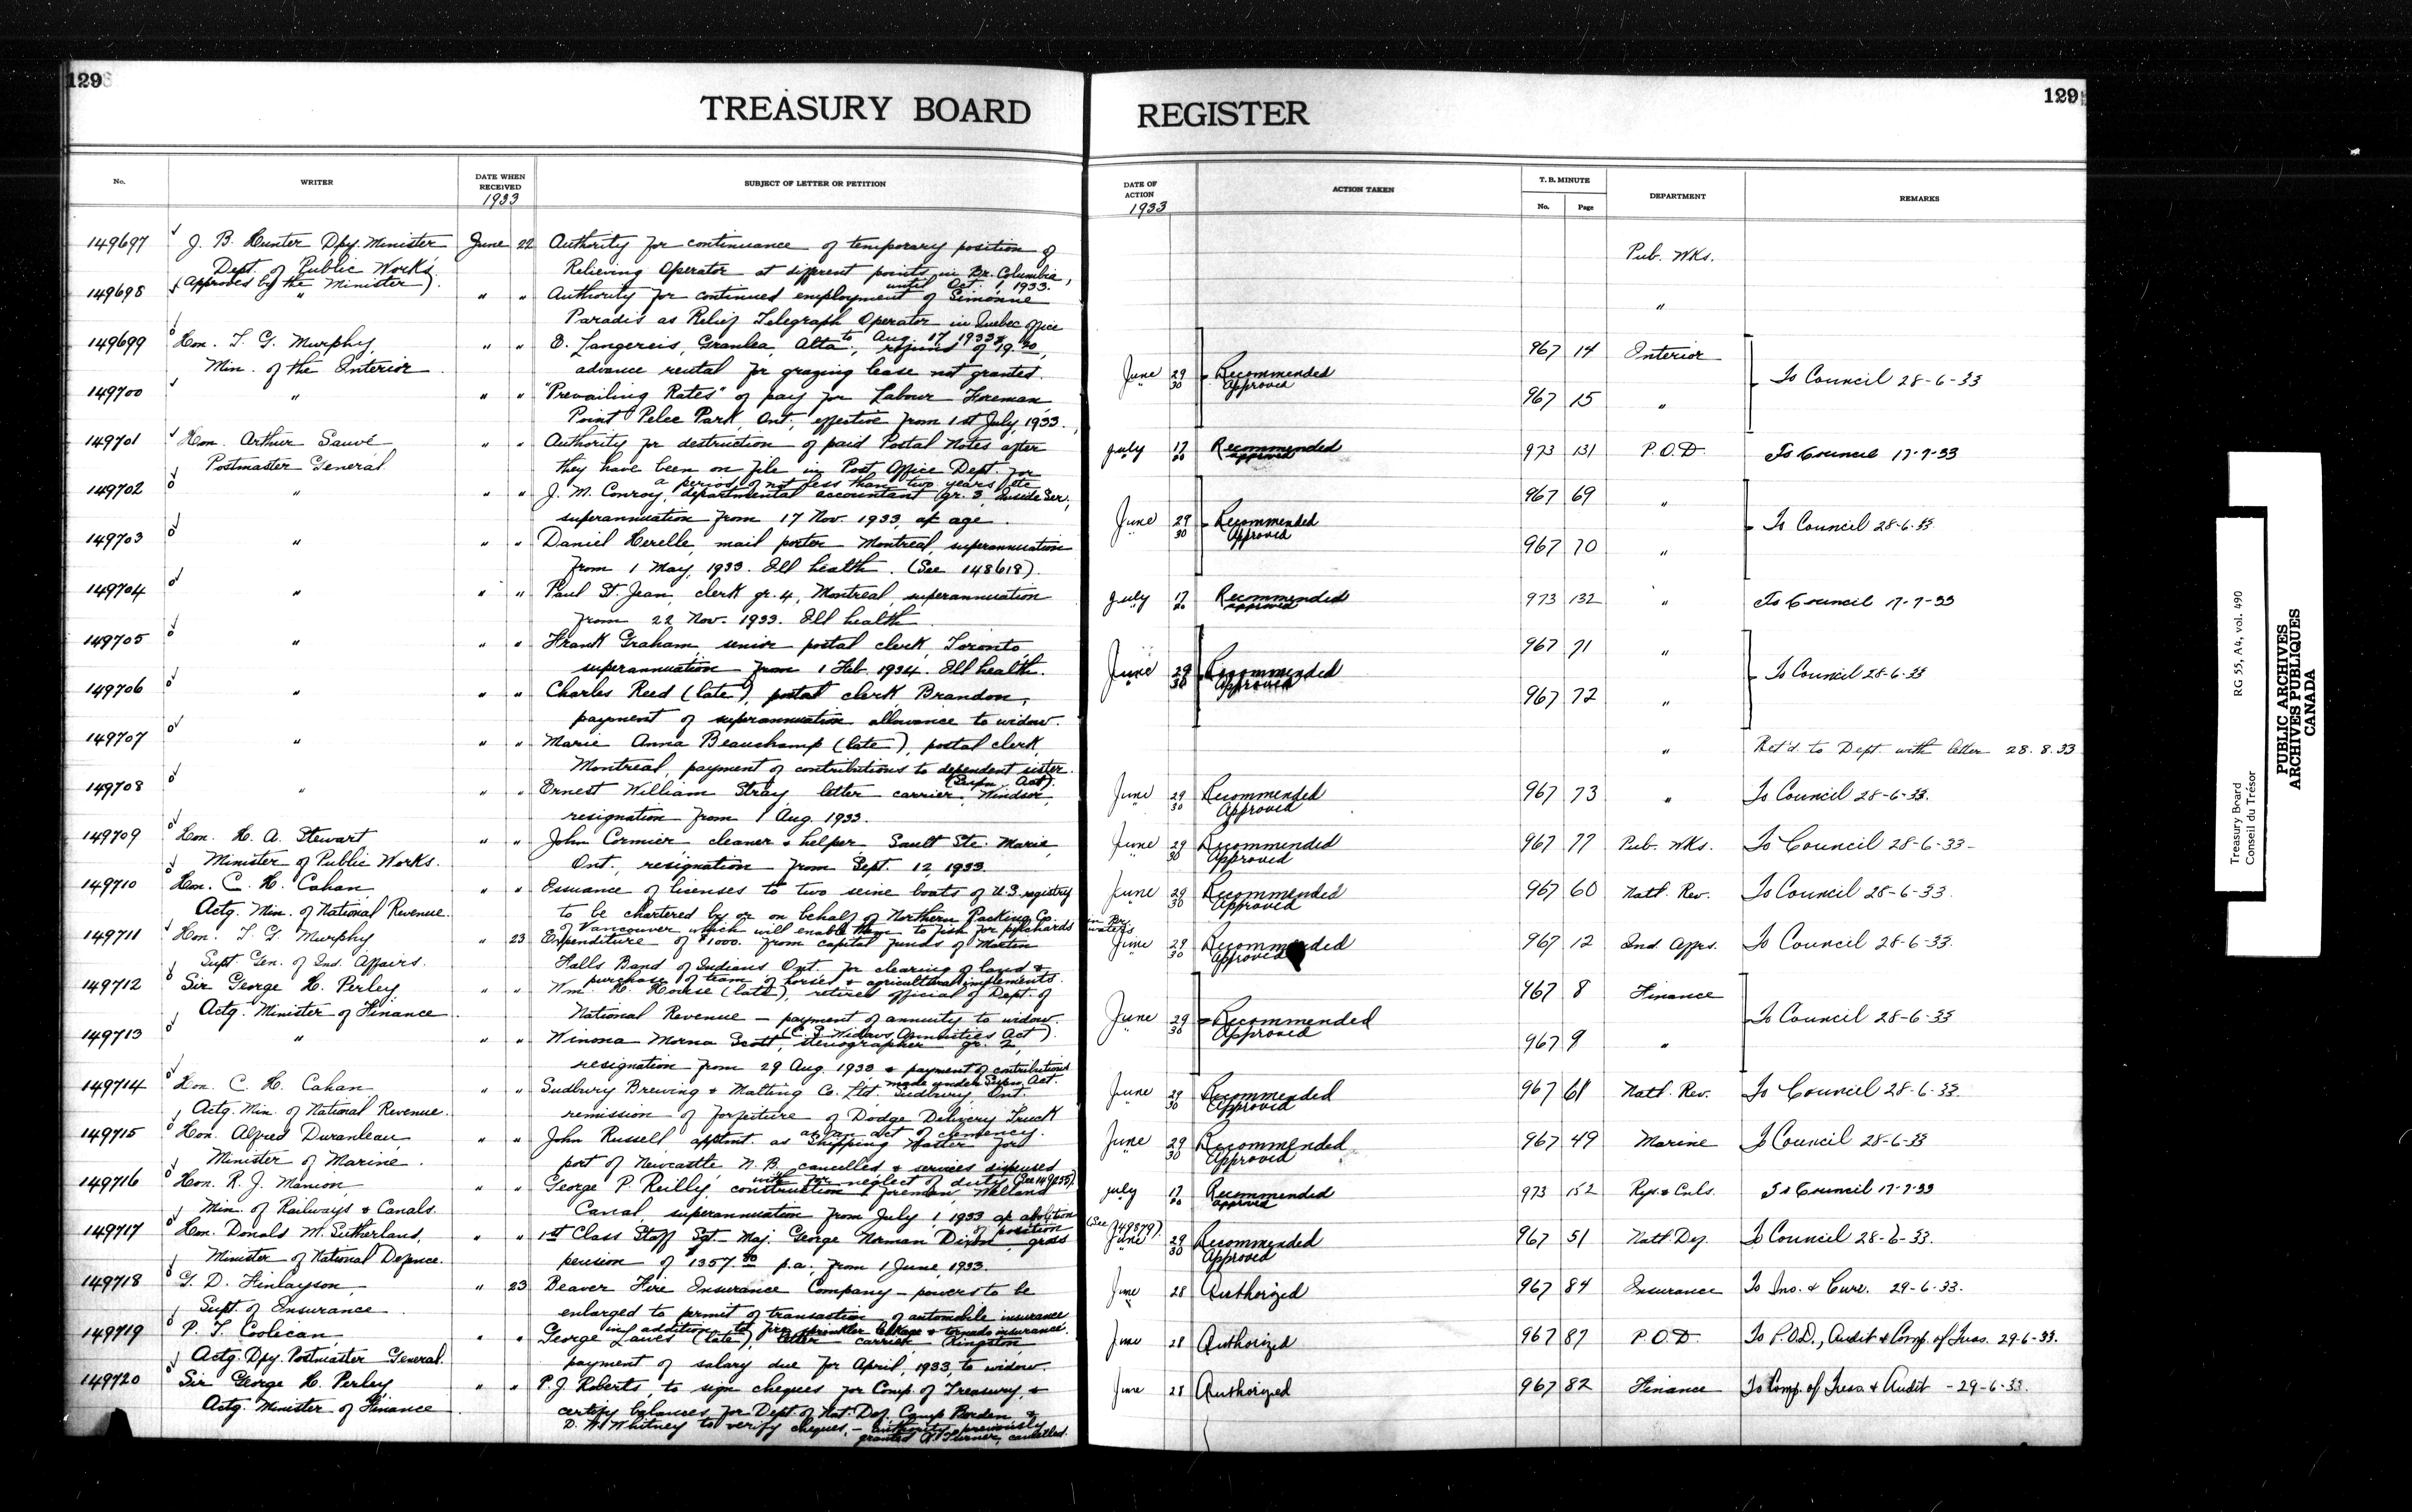 129
TREASURY BOARD REGISTER
129
No. WRITER DATE WHEN RECEIVED SUBJECT OF LETTER OR PETITION DATE OF ACTION ACTION TAKEN T. B. MINUTE No. Page DEPARTMENT REMARKS
1933 1933
149697 J. B. Hunter Dpy. Minister June 22 Authority for continuance of temporary position of Pub. Wks.
Dept. of Public Works Relieving Operator at different points in Br. Columbia,
(Approved by the Minister). until Oct. 1, 1933.
149698 " " " Authority for continued employment of Simonne "
Paradis as Relief Telegraph Operator in Quebec office
to Aug. 17 1933
149699 Hon. T. G. Murphy, " " O. Langereis, Granlea, Alta., refund of 19.20, 967 14 Interior
Min. of the Interior advance rental for grazing lease not granted. June 29 Recommended To Council 28-6-33
" 30 Approved
149700 " " " "Prevailing Rates" of pay for Labour Foreman 967 15 "
Point Pelee Park, Ont., effective from 1st July, 1933.
149701 Hon. Arthur Sauvé " " Authority for destruction of paid Postal Notes after July 17 Recommended 973 131 P.O.D. To Council 17-7-33
Postmaster General they have been on file in Post Office Dept. for " 20 approved
a period of not less than two years etc
149702 " " " J. M. Conroy, departmental accountant gr. 3, Inside Ser., 967 69 "
superannuation from 17 Nov. 1933, a/c age. June 29 Recommended To Council 28-6-33
" 30 Approved
149703 " " " Daniel Herelle, mail porter Montreal, superannuation 967 70 "
from 1 May, 1933. Ill health. (See 148618).
149704 " " " Paul St. Jean, clerk gr. 4, Montreal, superannuation July 17 Recommended 973 132 " To Council 17-7-33
from 22 Nov. 1933. Ill health " 20 approved
149705 " " " Frank Graham, senior postal clerk, Toronto, 967 71 "
superannuation from 1 Feb. 1934. Ill health. June 29 Recommended To Council 28-6-33
" 30 Approved
149706 " " " Charles Reed (late), postal clerk, Brandon, 967 72 "
payment of superannuation allowance to widow.
149707 " " " Marie Anna Beauchamp (late), postal clerk, " Ret'd. to Dept. with letter 28.8.33
Montreal, payment of contributions to dependent sister.
(Supn. Act).
149708 " " " Ernest William Stray, letter carrier, Windsor, June 29 Recommended 967 73 " To Council 28-6-33.
resignation from 1 Aug. 1933. " 30 Approved
149709 Hon. H. A. Stewart " " John Cormier, cleaner & helper Sault Ste. Marie, June 29 Recommended 967 77 Pub. Wks. To Council 28-6-33-
Minister of Public Works. Ont., resignation from Sept. 12, 1933. " 30 Approved
149710 Hon. C. H. Cahan " " Issuance of licenses to two seine boats of U.S. registry June 29 Recommended 967 60 Natl. Rev. To Council 28-6-33.
Actg. Min. of National Revenue. to be chartered by or on behalf of Northern Packing Co. " 30 Approved
of Vancouver which will enable them to fish for pilchards in Br. waters
149711 Hon. T. G. Murphy " 23 Expenditure of $1000. from capital funds of Martin June 29 Recommended 967 12 Ind. Affrs. To Council 28-6-33.
Supt. Gen. of Ind. Affairs. Falls Band of Indians Ont. for clearing of land & " 30 Approved
purchase of team of horses & agricultural implements.
149712 Sir George H. Perley " " Wm. H. House (late), retired official of Dept. of 967 8 Finance
Actg. Minister of Finance National Revenue – payment of annuity to widow. June 29 Recommended To Council 28-6-33
(C. S. Widows Annuities Act). " 30 Approved
149713 " " " Winona Morna Scott, stenographer gr. 2, 967 9 "
resignation from 29 Aug. 1933 & payment of contributions
made under Supn. Act.
149714 Hon. C. H. Cahan " " Sudbury Brewing & Malting Co. Ltd. Sudbury, Ont. June 29 Recommended 967 61 Natl. Rev. To Council 28-6-33.
Actg. Min. of National Revenue. remission of forfeiture of Dodge Delivery Truck " 30 Approved
as an act of clemency.
149715 Hon. Alfred Duranleau, " " John Russell apptmt. as Shipping Master for June 29 Recommended 967 49 Marine To Council 28-6-33
Minister of Marine. port of Newcastle N.B. cancelled & services dispensed " 30 Approved
with for neglect of duty
149716 Hon. R. J. Manion, " " George P. Reilly, construction foreman, Welland July 17 Recommended 973 152 Rys. & Cnls. To Council 17-7-33
Min. of Railways & Canals. Canal, superannuation from July 1, 1933 a/c abolition " 20 approved
of position (See 149879).
149717 Hon. Donald M. Sutherland, " " 1st Class Staff Sgt.-Maj. George Norman Dixon, gross June 29 Recommended 967 51 Natl. Def. To Council 28-6-33.
Minister of National Defence. pension of $1357.80 p.a. from 1 June, 1933. 30 Approved
149718 G. D. Finlayson, " 23 Beaver Fire Insurance Company – powers to be June 28 Authorized 967 84 Insurance To Ins. & Cure. 29-6-33.
Supt. of Insurance enlarged to permit of transaction of automobile insurance
in addition to fire, sprinkler leakage & tornado insurance.
149719 P. T. Coolican, " " George Lawes (late), letter carrier Kingston, June 28 Authorized 967 87 P.O.D. To P.O.D., Audit & Comp. of Treas. 29-6-33.
Actg. Dpy. Postmaster General. payment of salary due for April, 1933, to widow.
149720 Sir George H. Perley " " P. J. Roberts, to sign cheques for Comp. of Treasury, & June 28 Authorized 967 82 Finance To Comp. of Treas. & Audit - 29-6-33.
Actg. Minister of Finance certify balances for Dept. of Nat. Def. Camp Borden &
D. W. Whitney to verify cheques, – authority previously
granted Turner, cancelled.
Treasury Board RG 55, A4, vol. 490
Conseil du Trésor
PUBLIC ARCHIVES
ARCHIVES PUBLIQUES
CANADA